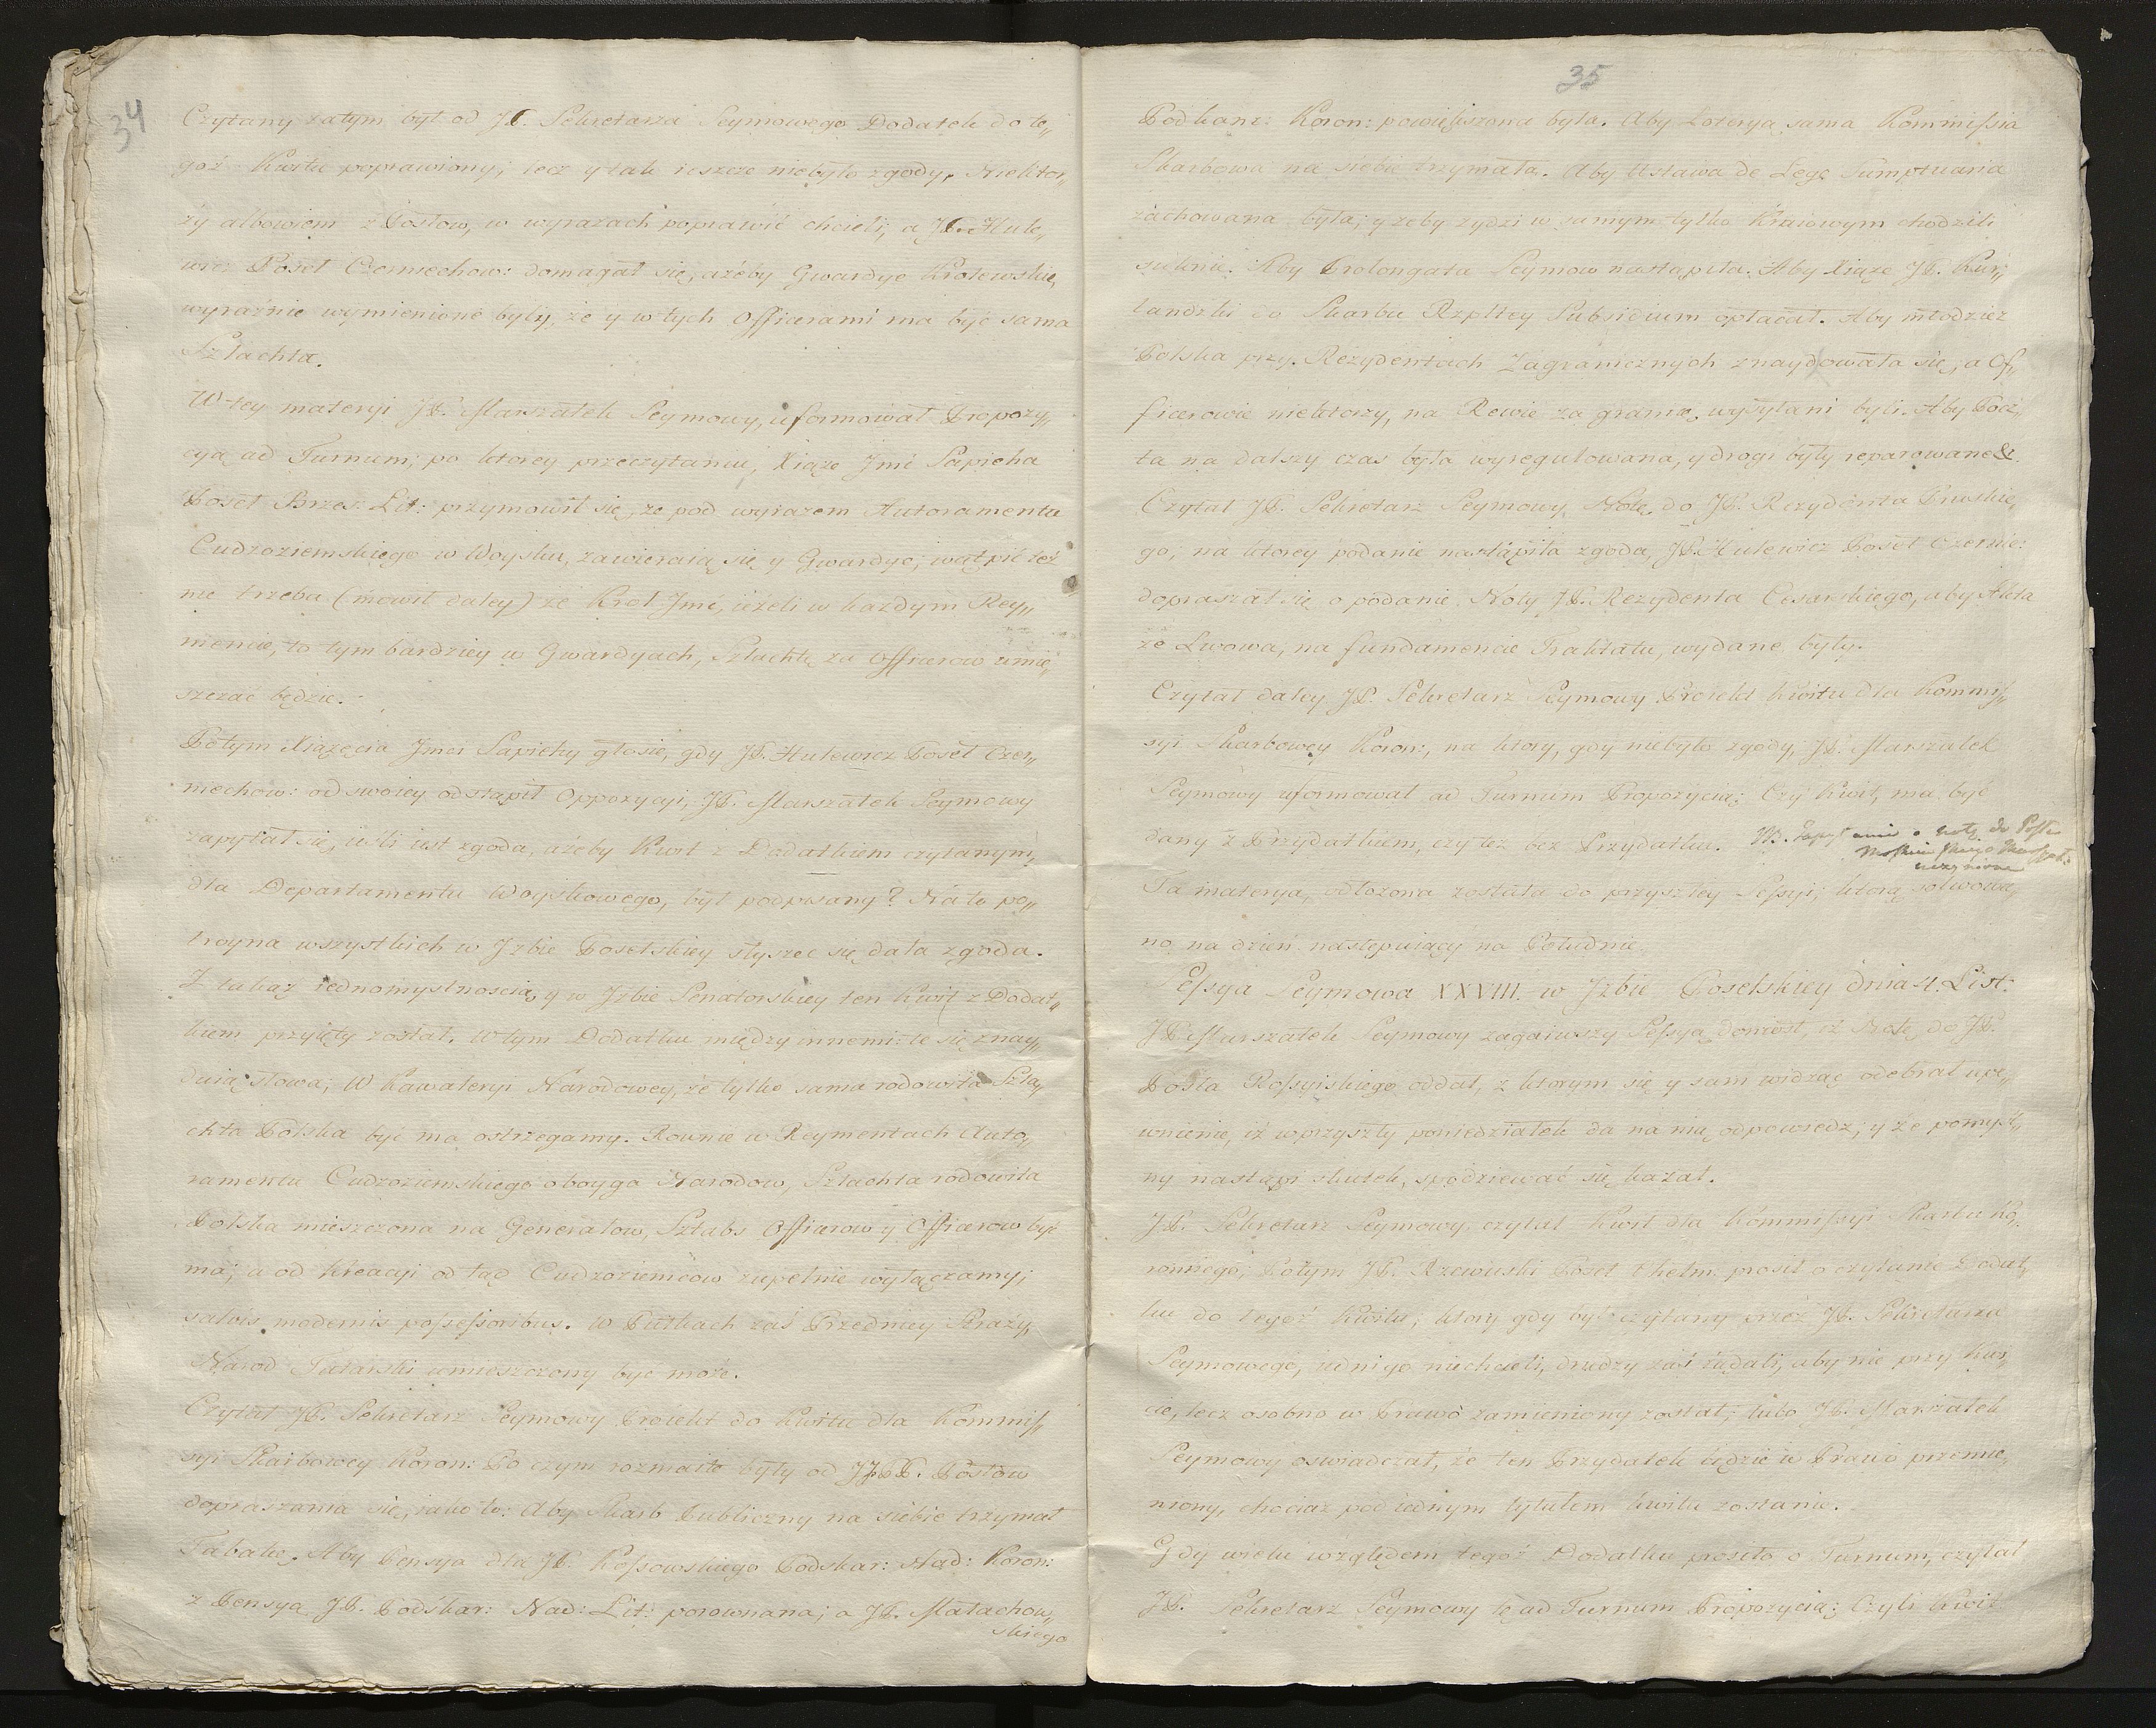 34
Czytany zatym był od JP. Sekretarza Seymowego Dodatek do te„
goż Kwitu poprawiony; lecz y tak ieszcze niebyło zgody, Niekto„
rzy albowiem z Posłow, w wyrazach poprawić chcieli; a JP. Hule„
wicz Poseł Czerniechow: domagał się, ażeby Gwardye Krolewskie,
wyraźnie wymienione były, że y w tych Officerami ma być sama
Szlachta.
W tey materyi JP. Marszałek Seymowy, uformował Propozy„
cyą ad Turnum; po ktorey przeczytaniu, Xiąże Jmć Sapieha
Poseł Brzes: Lit: przymowił się, że pod wyrazem Autoramentu
Cudzoziemskiego w Woysku, zawieraią się y Gwardye; wątpić też
nie trzeba (mowił daley) że Krol Jmć, ieżeli w każdym Rey„
mencie, to tym bardziey w Gwardyach, Szlachtę za Officerow umie„
szczać będzie.
Potym Xiążęcia Jmci Sapiehy głosie, gdy JP. Hulewicz Poseł Czer„
niechow: od swoiey odstąpił Oppozycyi, JP. Marszałek Seymowy
zapytał się, ieśli iest zgoda, ażeby Kwit z Dodatkiem czytanym,
dla Departamentu Woyskowego, był podpisany? Na to po„
troyna wszystkich w Jzbie Poselskiey słyszeć się dała zgoda.
Z takąż iednomyslnoscią y w Jzbie Senatorskiey ten Kwit z Dodat„
kiem przyięty został. W tym Dodatku między innemi te się znay„
duią słowa; W Kawaleryi Narodowey, że tylko sama rodowita Szla„
chta Polska być ma ostrzegamy. Rownie w Reymentach Auto„
ramentu Cudzoziemskiego oboyga Narodow, Szlachta rodowita
Polska mieszczona na Generałow, Sztabs Officerow y Officerow być
ma; a od kreacyi od tąd Cudzoziemcow zupełnie wyłączamy;
salvis modernis possessoribus. W Pułkach zaś Przedniey Straży,
Narod Tatarski umieszczony być może.
Czytał JP. Sekretarz Seymowy Proiekt do Kwitu dla Kommis„
syi Skarbowey Koron: Po czym rozmaite były od JJPP. Posłow
dopraszania się, iako to: Aby Skarb Publiczny na siebie trzymał
Tabakę. Aby Pensya dla JP. Kossowskiego Podskar: Nad: Koron:
z Pensyą JP. Podskar: Nad: Lit: porownana; a JP. Małachow„
skiego
35
Podkanc: Koron: powiększona była. Aby Loteryą sama Kommissia
Skarbowa na siebie trzymała. Aby Ustawa de Lege Sumptuaria
zachowana była; y żeby żydzi w samym tylko Kraiowym chodzili
suknie. Aby Prolongata Seymow nastąpiła. Aby Xiąże JP. Kur„
landzki do Skarbu Rzpltey Subsidium opłacał. Aby młodzież
Polska przy Rezydentach Zagranicznych znaydowała się, a Of„
ficerowie niektorzy, na Rewie za granicę wysyłani byli. Aby Pocz„
ta na dalszy czas była wyregulowana, y drogi były reparowane &.
Czytał JP. Sekretarz Seymowy Notę do JP. Rezydenta Pruskie„
go, na ktorey podanie nastąpiła zgoda, JP. Hulewicz Poseł Czernie:
dopraszał się o podanie Noty JP. Rezydenta Cesarskiego, aby Akta
ze Lwowa, na fundamencie Traktatu, wydane były.
Czytał daley JP. Sekretarz Seymowy Proiekt Kwitu dla Kommis„
syi Skarbowey Koron:, na ktory, gdy niebyło zgody, JP. Marszałek
Seymowy uformował ad Turnum Propozycią: Czy Kwit, ma być
dany z Przydatkiem, czy też bez Przydatku. NB. Zapytanie o notę do Posła
Moskiewskiego
uczynione
Ta materya, odłożona została do przyszłey Sessyi; ktorą solwowa„
no na dzień następuiący na Południe.
Sessya Seymowa XXVIII. w Jzbie Poselskiey dnia 4. List:
JP. Marszałek Seymowy zagaiwszy Sessyą doniosł, iż Notę do JP.
Posła Rossyiskiego oddał, z ktorym się y sam widząc odebrał upe„
wnienie, iż w przyszły poniedziałek da na nią odpowiedz; y że pomyśl„
ny nastąpi skutek, spodziewać się kazał.
JP. Sekretarz Seymowy czytał Kwit dla Kommissyi Skarbu Ko„
ronnego; Potym JP. Rzewuski Poseł Chełm: prosił o czytanie Dodat„
ku do tegoż Kwitu; ktory gdy był czytany przez JP. Sekretarza
Seymowego, iedni go niechcieli, drudzy zaś żądali, aby nie przy Kwi„
cie, lecz osobno w Prawo zamieniony został; lubo JP. Marszałek
Seymowy oswiadczał, że ten Przydatek będzie w Prawo przemie„
niony, chociaż pod iednym tytułem kwitu zostanie.
Gdy wielu względem tegoż Dodatku prosiło o Turnum, czytał
JP. Sekretarz Seymowy tę ad Turnum Propozycią: Czyli Kwit